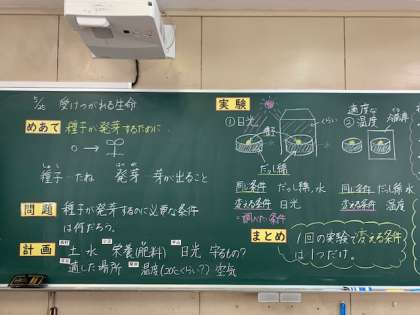 受けつがれる生命
めあて 種子が発芽するために
しゅし
種子…たね
はつが
発芽…芽が出ること
問題 種子が発芽するのに必要な条件
は何だろう。
計画 土 水 栄養(肥料) 日光 守るもの?
適した場所 温度(20℃くらい?) 空気
実験
①日光
種子
くらい
だっし綿
同じ条件 だっし綿、水
変える条件 日光
=調べたい条件
②適度な温度
冷蔵庫
同じ条件 だっし綿 水
変える条件 温度
まとめ
1回の実験で変える条件
は1つだけ。